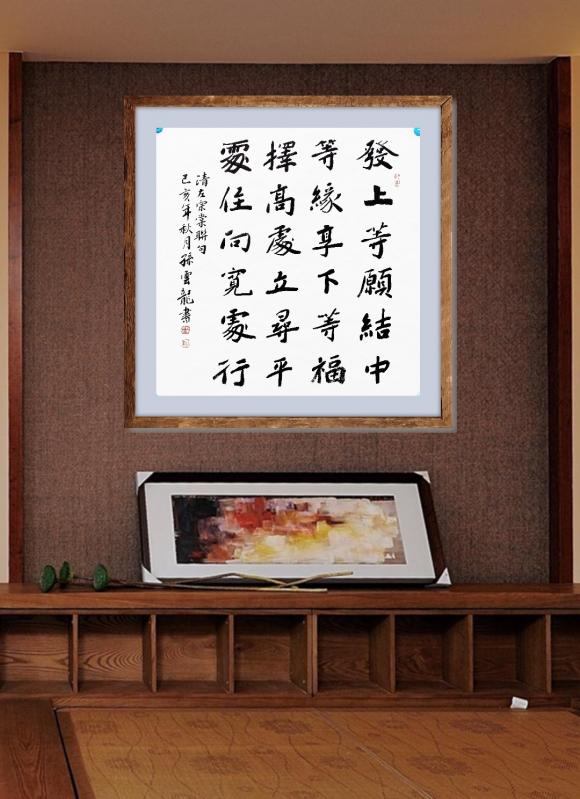 發上等願結中
等緣享下等福
擇高處立尋平
處住向寬處行
清左宗棠聯句
己亥年秋月孫雲龍書